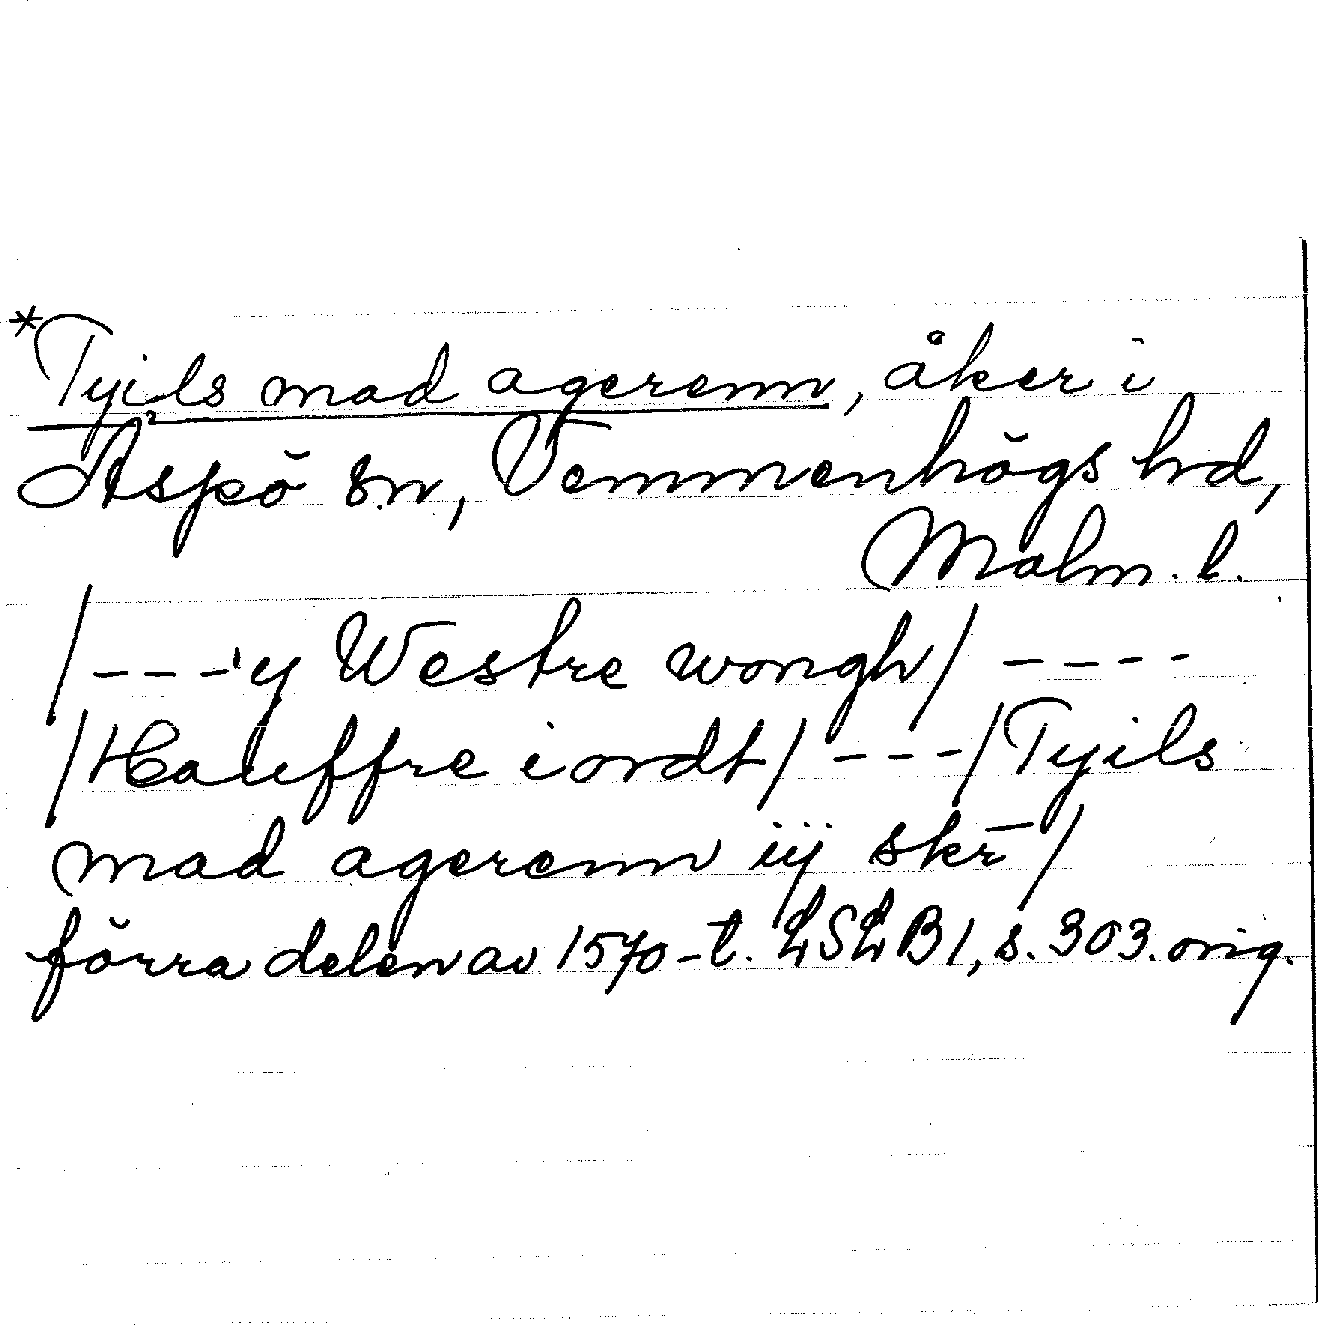 *Tyils mad agerenn, åker i
Äspö sn, Vemmenhögs hd,
Malm. l.
/---y Westre wongh/ ----
/Hauffre iordt/ ---/Tyils
mad agerenn iij skr̄/
förra delen av 1570-t. LSLB1, s. 303. orig.